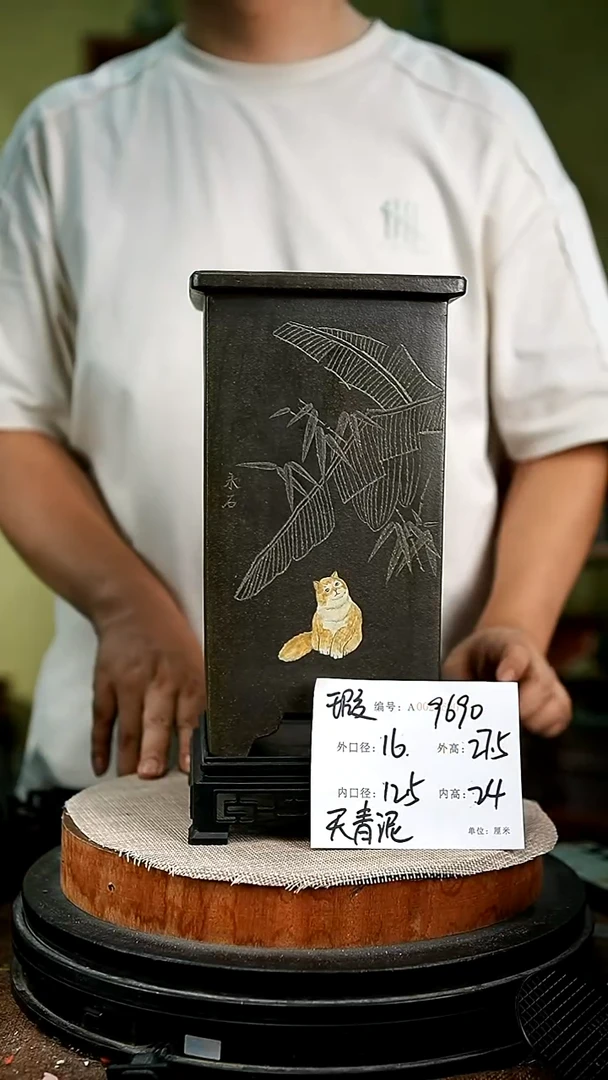 永石
瑕 编号: A 9690
外口径: 16. 外高: 27.5
内口径: 12.5 内高: 24
天青泥 单位: 厘米